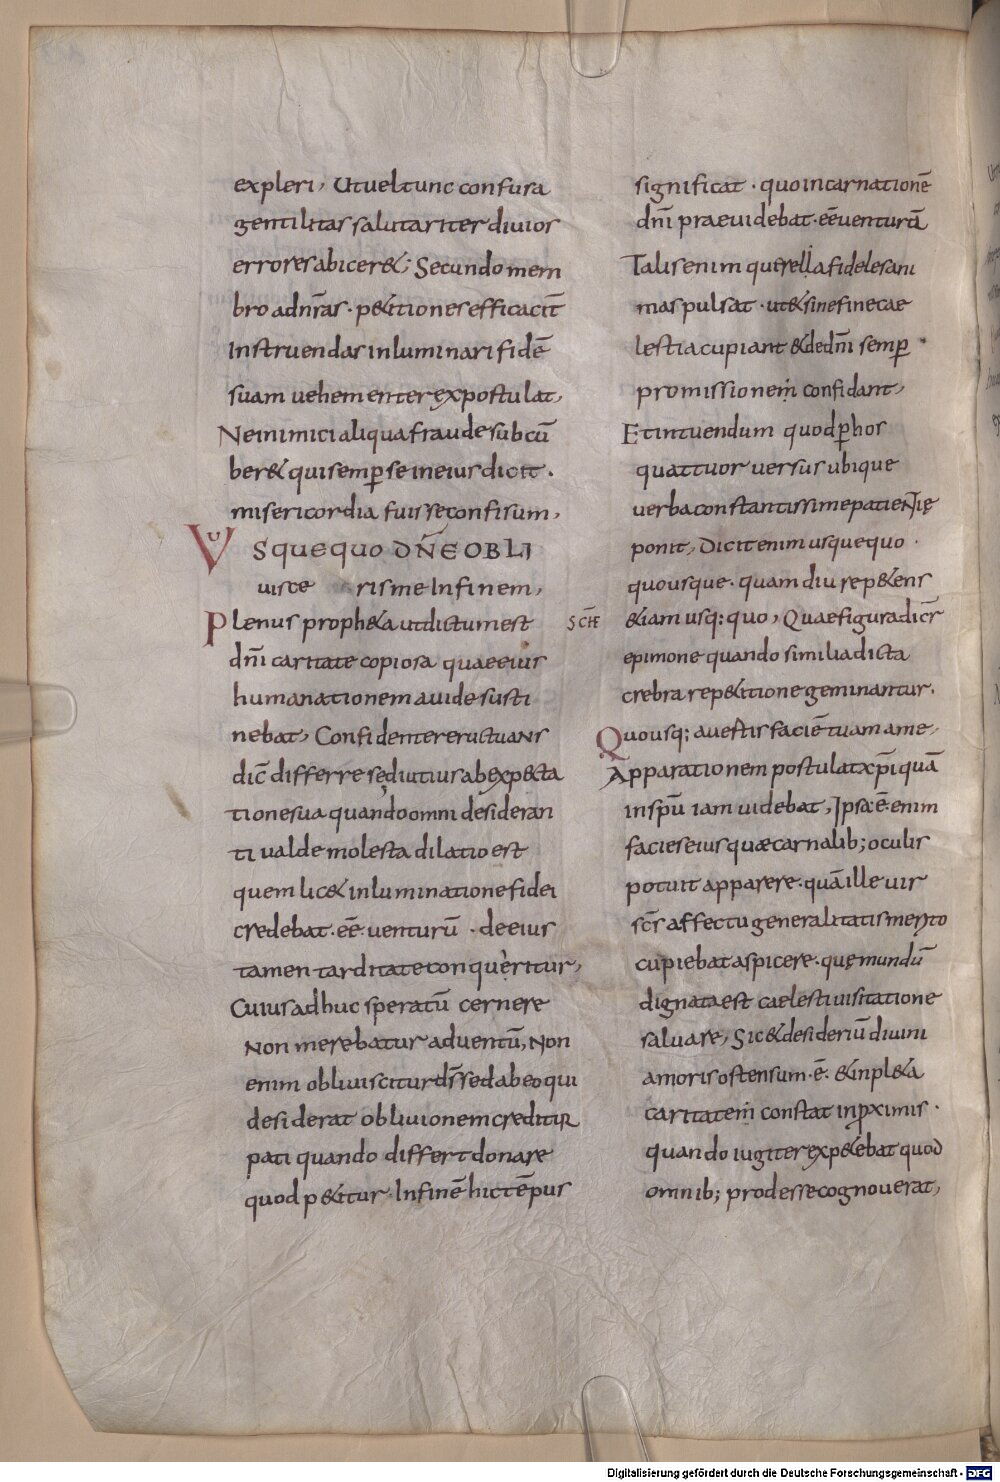 expleri, Utueltunc confusa
gentilitas salutariter diuios
errores abicer&; Secundo mem
bro adnr̄as · p&itiones efficacit̄
Instruendas inluminari fidē
suam uehementer expostulat,
Ne inimici aliqua fraude subcū
ber& qui semp̱ se in eius dicit ·
misericordia fuisse confisum,
Usquequo DN̄E OBLI
uisce ris me Infinem,
Plenus proph&a ut dictum est
dn̄i caritate copiosa quae eius
humanationem auide susti
nebat, Confidenter eructuans
dic̄ differre se diutius ab exp&ta
tione sua quando omni desideran
ti ualde molesta dilatio est
quem lic& inluminatione fidei
credebat · eē uenturū · de eius
tamen tarditate conqueritur,
Cuius adhuc speratū cernere
Non merebatur aduentū, Non
enim obliuiscitur ds̄ sed ab eo qui
desiderat obliuionem creditur
pati quando differt donare
quod p&itur · Infinē hic tēpus
significat · quo incarnationē
dn̄i praeuidebat · eē uenturā
Talis enim querella fideles ani
mas pulsat · ut & sine fine cae
lestia cupiant & de dn̄i semp̱
promissionem confidant,
Et intuendum quod p̱ hos
quattuor uersus ubique
uerba constantissime patientię
ponit, Dicit enim usquequo ·
quousque · quamdiu rep&ens
SCHE
&iam usq: quo, Quae figura dicr̄
epimone quando similia dicta
crebra rep&itione geminantur.
Quousq; auertis faciē tuam a me,
Apparationem postulat xp̄i quā
in sp̄u iam uidebat, Ipsa ē enim
facies eius quae carnalib; oculis
potuit apparere · quā ille uir
scs̄ affectu generalitatis merito
cupiebat aspicere · quę mundū
dignata est caelesti uisitatione
saluare, Sic & desideriū diuini
amoris ostensum · ē · & inpl&a
caritatem constat in p̱ximis ·
quando iugiter exp&ebat quod
omnib; prodesse cognouerat,
Digitalisierung gefördert durch die Deutsche Forschungsgemeinschaft - DFG